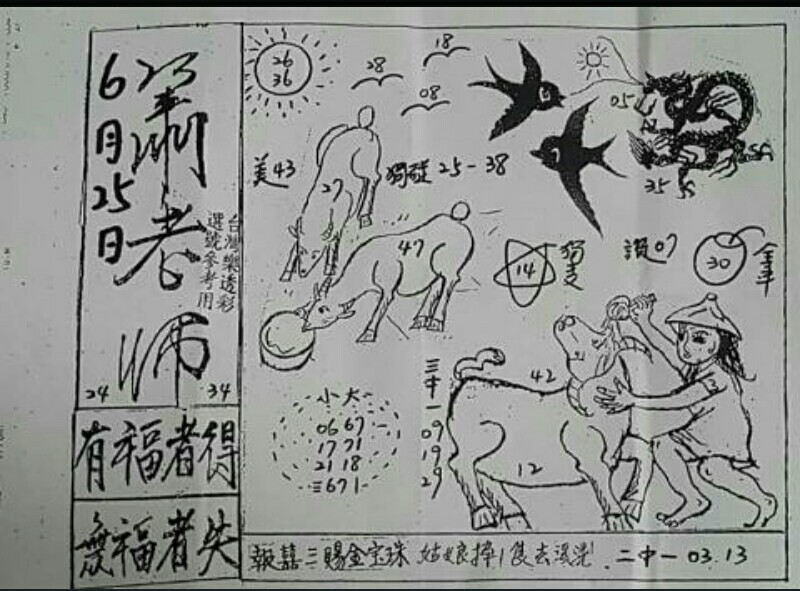 6月25日
蕭老師
台灣樂透彩
選號參考用
24
34
有福者得
無福者失
26
36
28
18
08
05
35
美43
27
獨發25-38
47
14
獨支
讚07
30
全年
小大
06 67
17 71
21 18
三671
三中一
09
19
29
42
12
報囍三賜金宝珠 姑娘捧1隻去 二中一 03.13